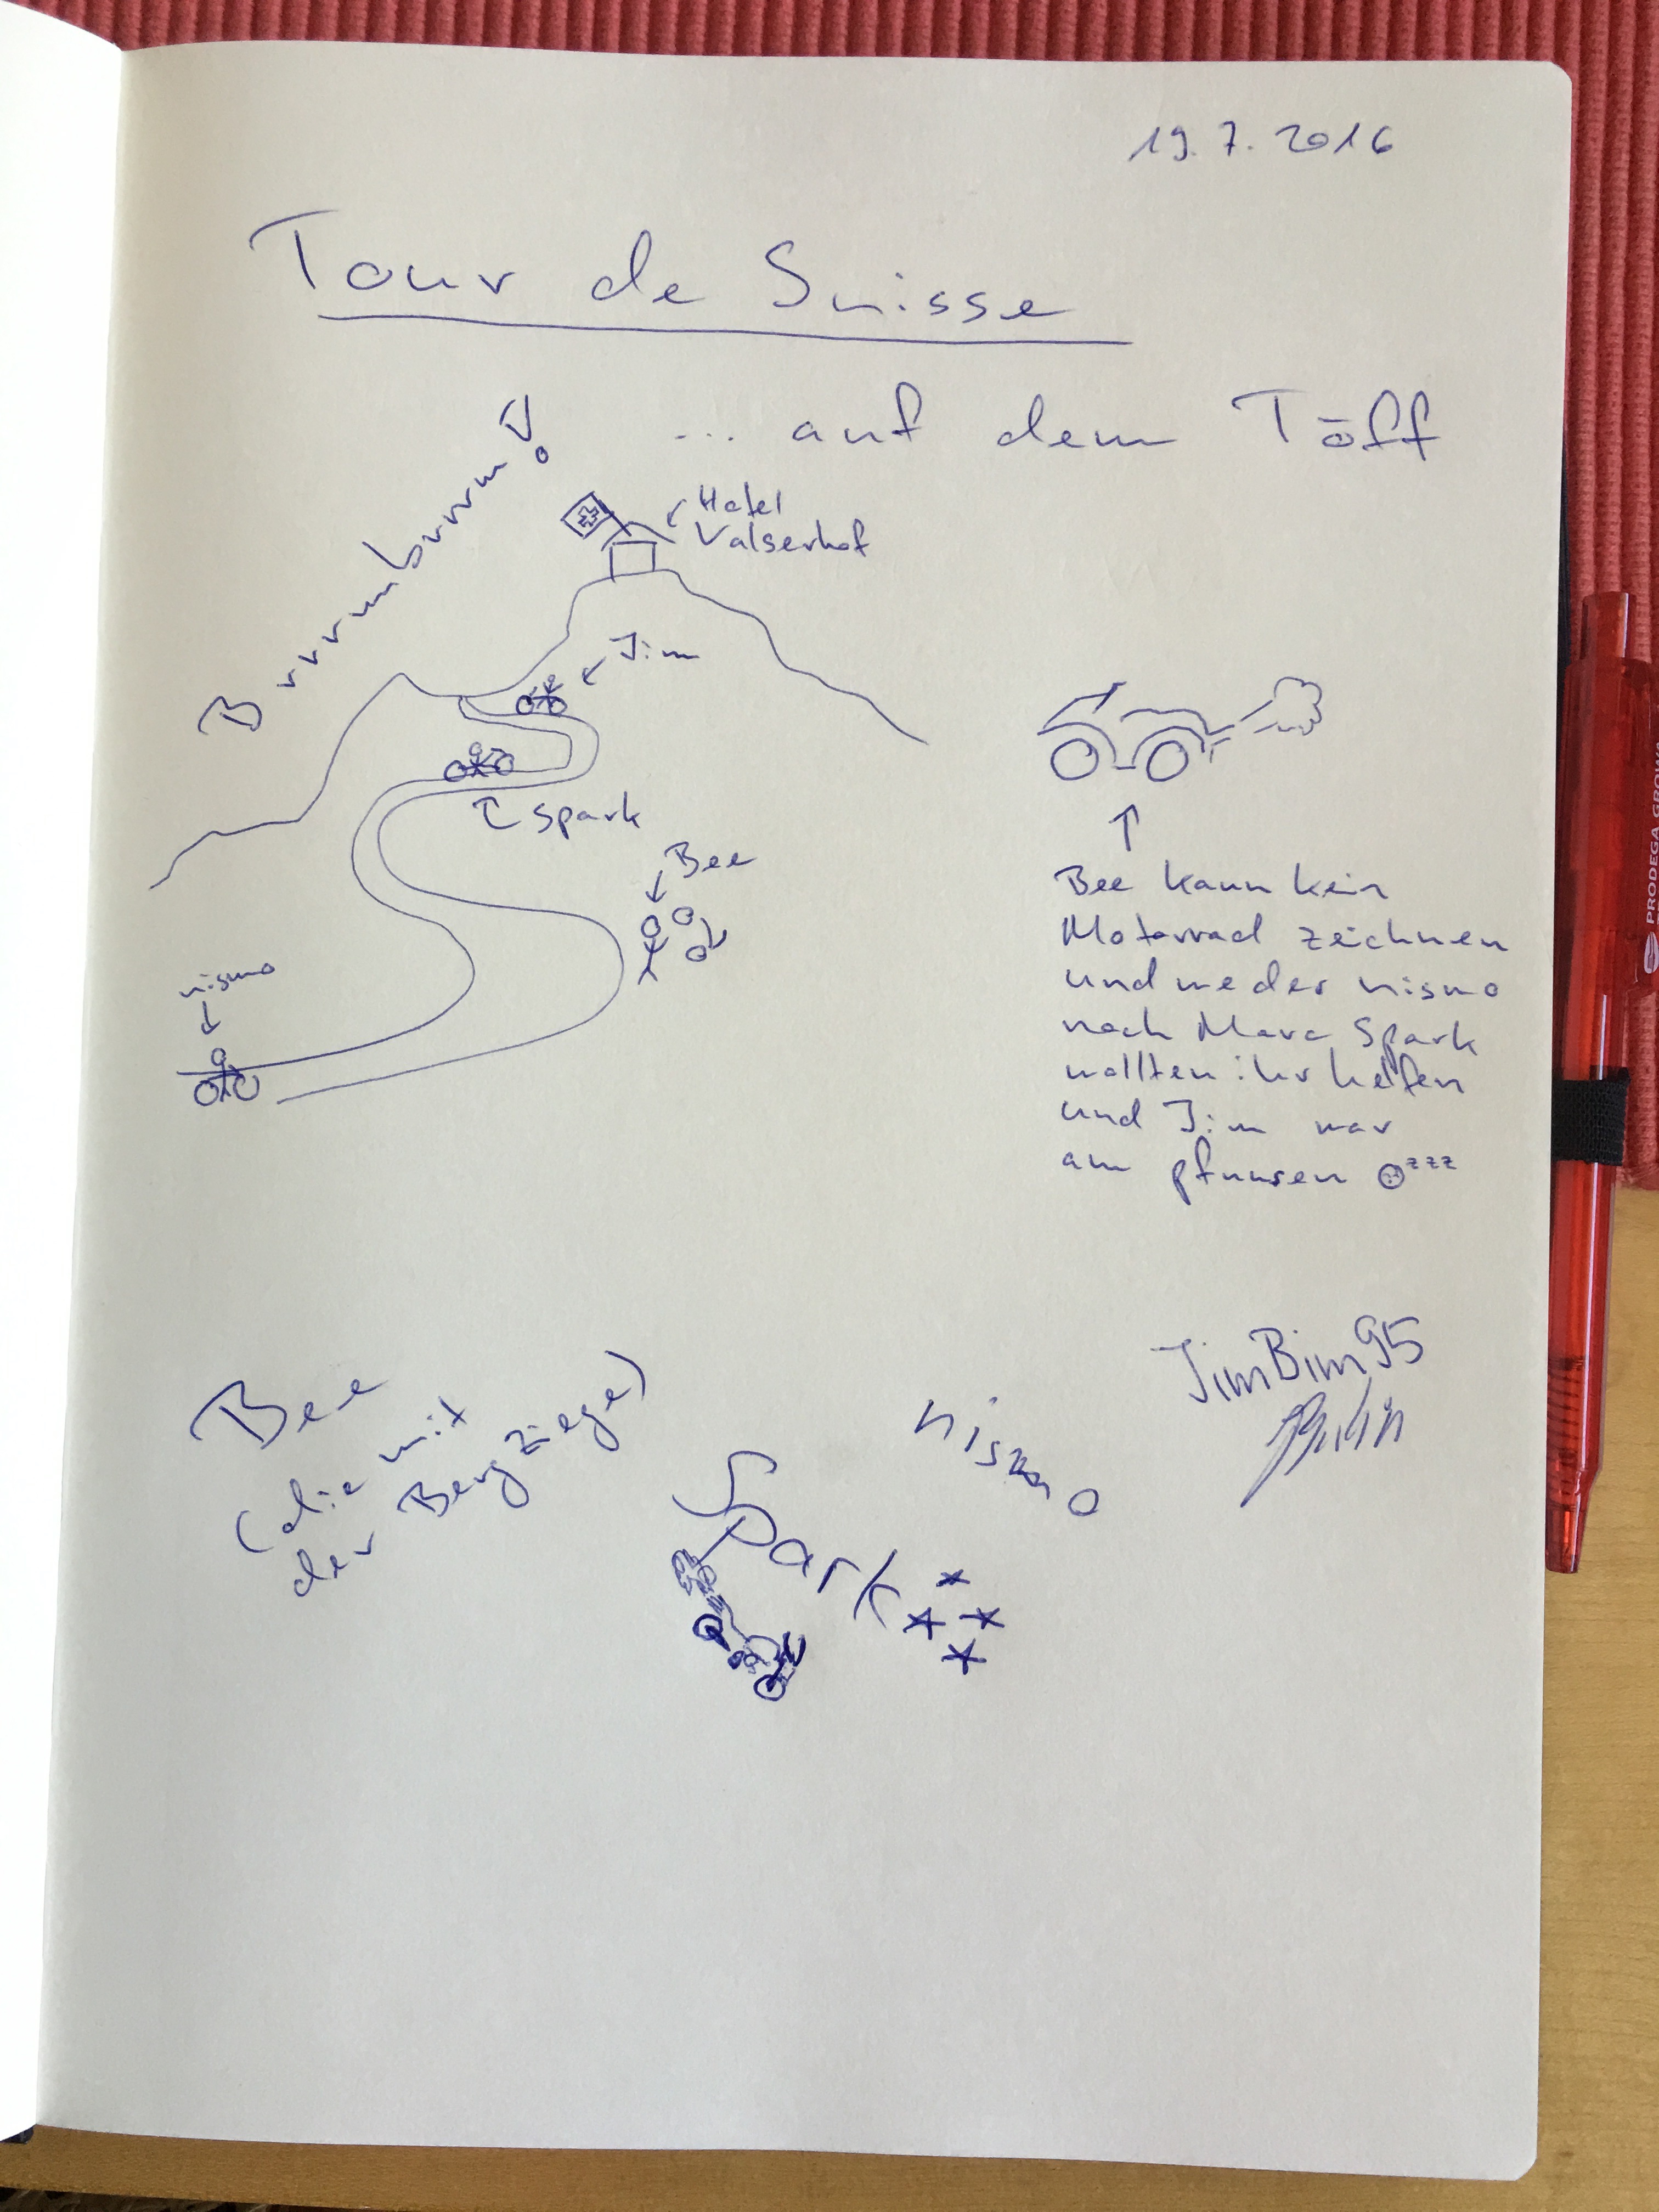 19.7.2016
Tour de Suisse
... auf dem Töff
Brrrumbrrrm!
Hotel
Valserhof
Jim
Spark
Bee
nismo
Bee kann kein
Motorrad zeichnen
und weder nismo
noch Marc Spark
wollten ihr helfen
und Jim war
am pfuusen zzz
Bee
(die mit
der Bergziege)
Spark
nismo
JimBim95
PRODEGA GROWA